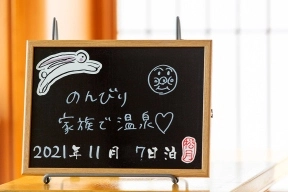 のんびり
家族で温泉♡
2021年11月 7日泊